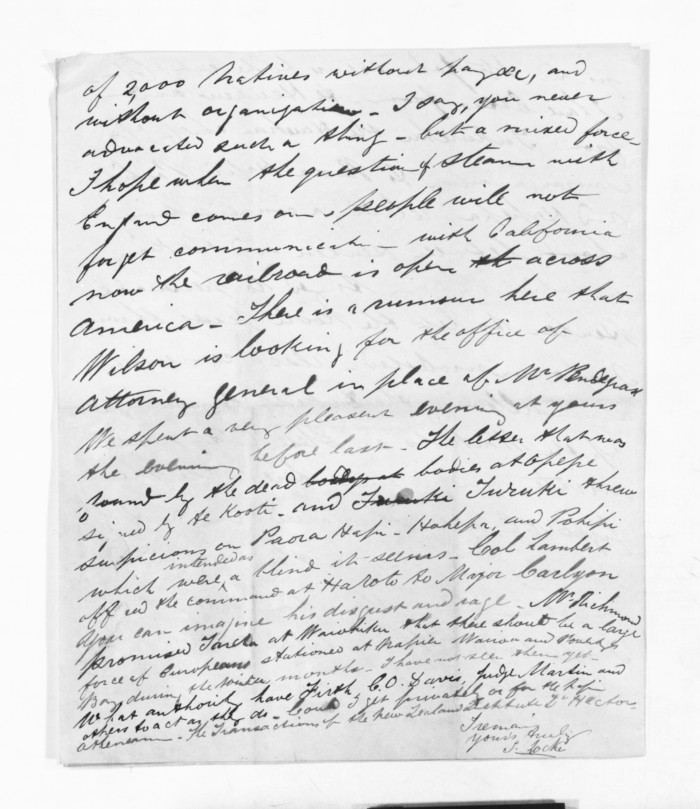 of 2,000 Natives without pay &c, and
without organization - I say, you never
advocated such a thing - but a mixed force -
I hope when the question of steam with
England comes on, people will not
forget communicati- with California
now the railroad is open across
America - There is a rumour here that
Wilson is looking for the office of
Attorney general in place of Mr Pendegrass
We spent a very pleasant evening at yours
the evening before last - The letter that was
found by the dead bodies at Opepe
signed by Te Kooti - and Turuki threw
suspicions on Paora Hapi - Hohepa, and Pohipi
which were intended as a blind it seems - Col Lambert
offered the command at Haroto to Major Carlyon
you can imagine his disgust and rage - Mr Richmond
promised Tareha at Waiohiki that there should be a large
force of Europeans stationed at Napier Wairoa and Poverty
Bay during the winter months - I have not seen them yet -
What authority have Firth, C.O. Davis, Judge Martin and
others to act as they do - Could you get privately or for the
Athenaeum - The Transactions of the New Zealand Institute Dr Hector -
I remain
Yours truly
S. Locke